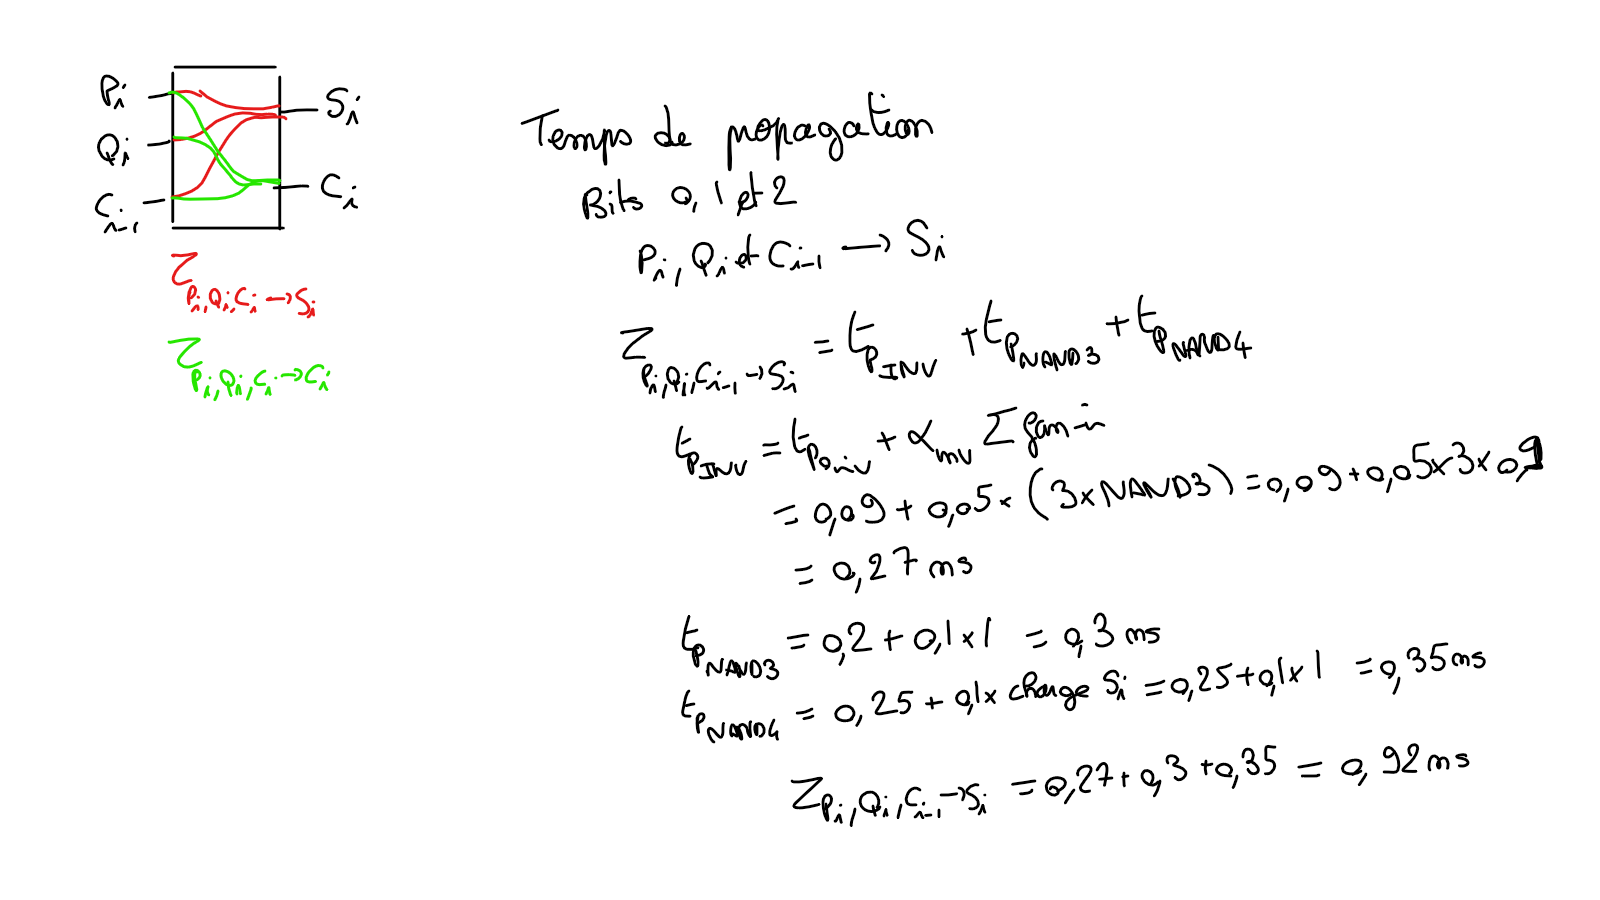 Pi
Qi
Ci-1
Si
Ci
τPi,Qi,Ci→Si
τPi,Qi,Ci→Ci
Temps de propagation
Bits 0, 1 et 2
Pi, Qi et Ci-1 → Si
τPi,Qi,Ci-1→Si = tPINV + tPNAND3 + tPNAND4
tPINV = tP0inv + αinv Σ fan-in
= 0,09 + 0,05 × (3×NAND3) = 0,09 + 0,05×3×
= 0,27 ms
tPNAND3 = 0,2 + 0,1×1 = 0,3 ms
tPNAND4 = 0,25 + 0,1× charge Si = 0,25 + 0,1×1 = 0,35 ms
τPi,Qi,Ci-1→Si = 0,27 + 0,3 + 0,35 = 0,92 ms